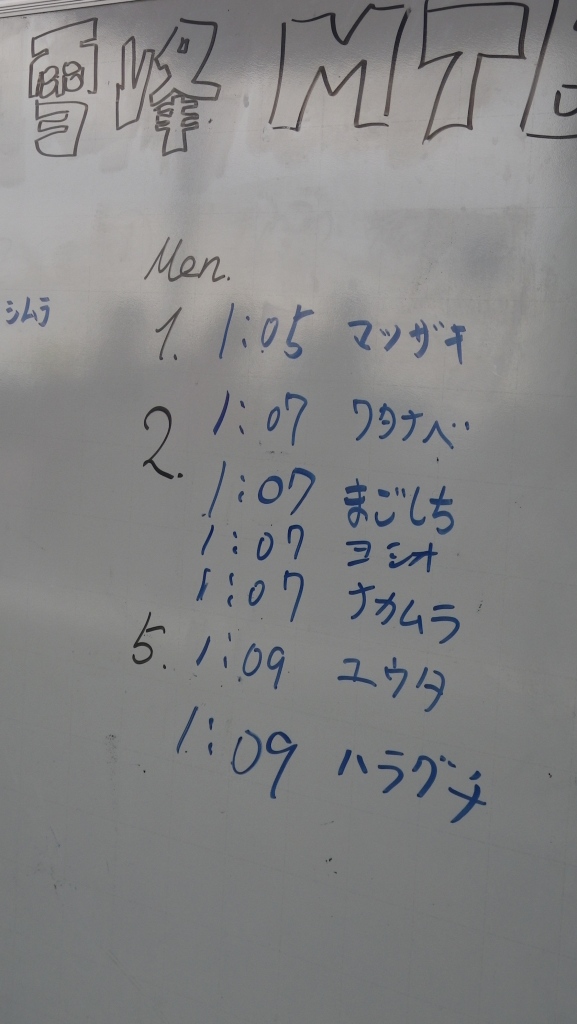 雪峰 MT
Men.
シムラ
1. 1:05 マツザキ
1:07 ワタナベ
2.
1:07 まごしち
1:07 ヨシオ
1:07 ナカムラ
5. 1:09 ユウタ
1:09 ハラグチ